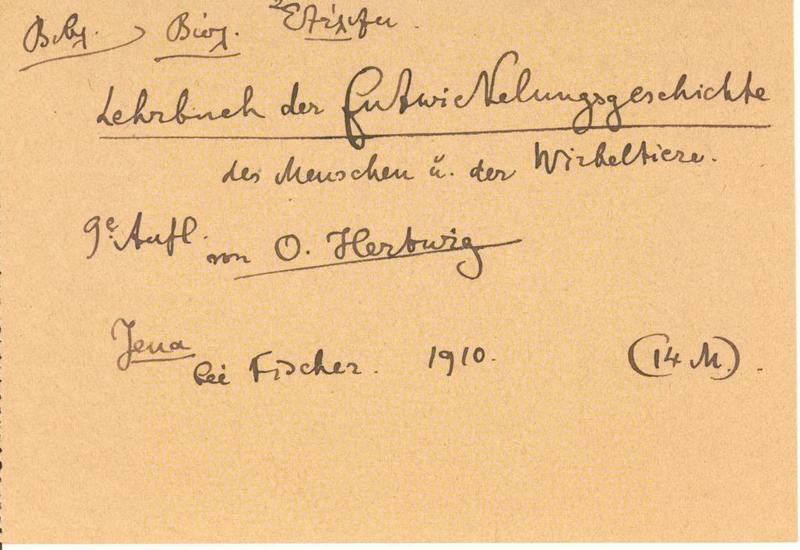 Biol.
Lehrbuch der Entwickelungsgeschichte
des Menschen u. der Wirbeltiere.
9e. Aufl. von O. Hertwig
Jena
bei Fischer. 1910. (14 M.).